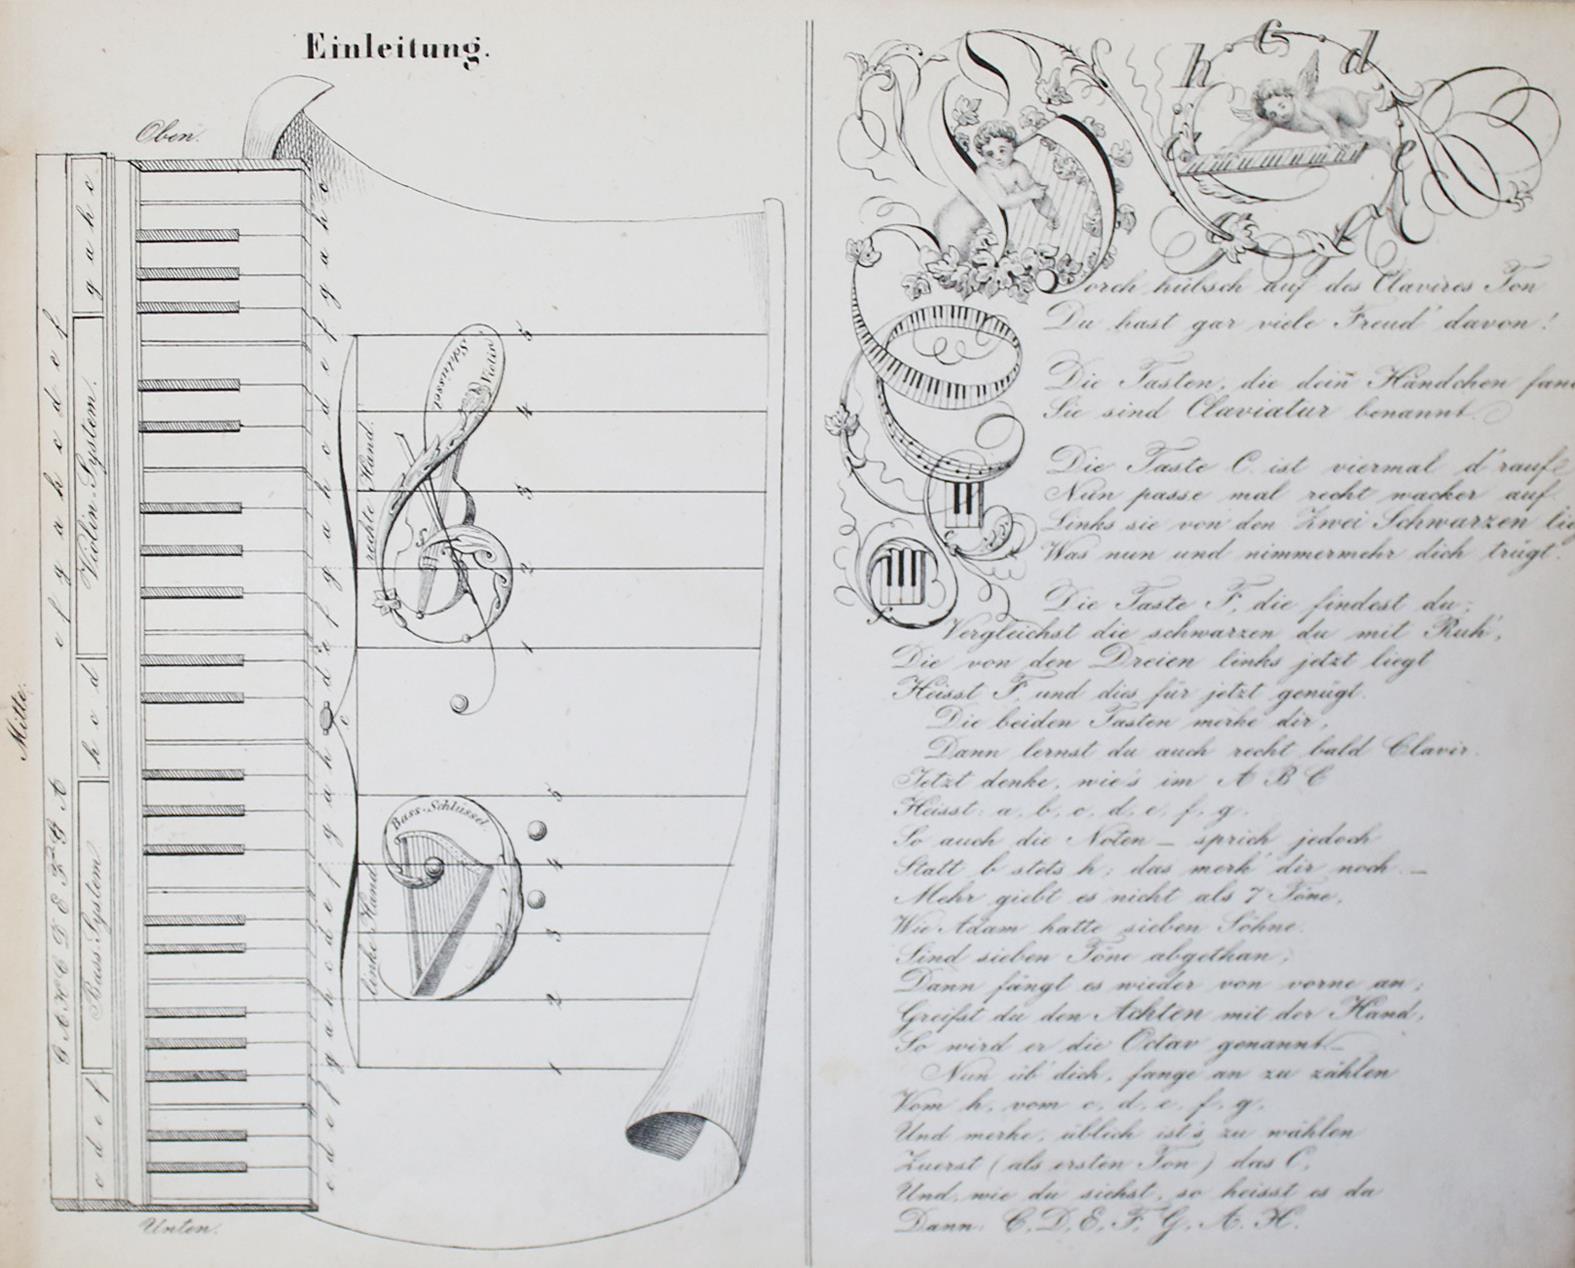 Einleitung.
Oben.
Mitte.
Unten.
g a h c
Violin-System.
h c d
Bass-System.
c d e f
e f g a h c d e f
G A H C D E F G A
c d e f g a h c d e f g a h c d e f g a h c d e f g a h c
rechte Hand.
Violin
Schlüssel
5
4
3
2
1
linke Hand
Bass-Schlüssel.
5
4
3
2
1
h c d
e
f
g
a
Horch hübsch auf des Clavires Ton
Du hast gar viele Freud' davon!
Die Tasten, die dein Händchen fand
Sie sind Claviatur benannt.
Die Taste C ist viermal d'rauf:
Nun passe mal recht wacker auf.
Links sie von den Zwei Schwarzen lieg
Was nun und nimmermehr dich trügt.
Die Taste F, die findest du;
Vergleichst die schwarzen du mit Ruh',
Die von den Dreien links jetzt liegt
Heisst F, und dies für jetzt genügt.
Die beiden Tasten merke dir,
Dann lernst du auch recht bald Clavir.
Jetzt denke, wie's im A B C
Heisst: a, b, c, d, e, f, g.
So auch die Noten – sprich jedoch
Statt b stets h; das merk' dir noch. –
Mehr giebt es nicht als 7 Töne,
Wie Adam hatte sieben Söhne.
Sind sieben Töne abgethan;
Dann fängt es wieder von vorne an;
Greifst du den Achten mit der Hand,
So wird er die Octav genannt. –
Nun üb' dich, fange an zu zählen
Vom h, vom c, d, e, f, g,
Und merke, üblich ist's zu wählen
Zuerst (als ersten Ton) das C,
Und, wie du siehst, so heisst es da
Dann: C, D, E, F, G, A, H.